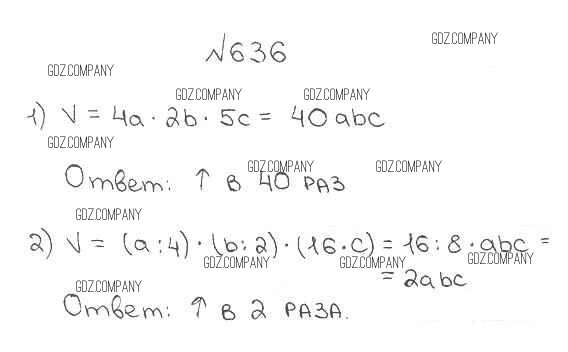 №636
GDZ.COMPANY
GDZ.COMPANY
GDZ.COMPANY GDZ.COMPANY
1) V = 4a · 2b · 5c = 40 abc
GDZ.COMPANY
GDZ.COMPANY GDZ.COMPANY
Ответ: ↑ в 40 раз
GDZ.COMPANY
2) V = (a : 4) · (b : 2) · (16 · c) = 16 : 8 · abc =
GDZ.COMPANY GDZ.COMPANY GDZ.COMPANY
= 2abc
GDZ.COMPANY
Ответ: ↑ в 2 раза.